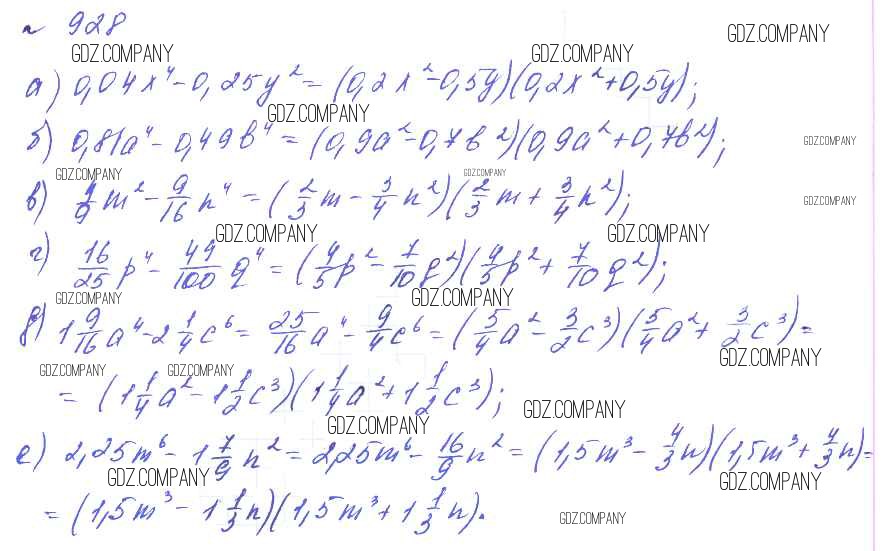 № 928
GDZ.COMPANY GDZ.COMPANY GDZ.COMPANY
а) 0,04x⁴ - 0,25y² = (0,2x² - 0,5y)(0,2x² + 0,5y);
GDZ.COMPANY
б) 0,81a⁴ - 0,49b⁴ = (0,9a² - 0,7b²)(0,9a² + 0,7b²);
GDZ.COMPANY
GDZ.COMPANY GDZ.COMPANY
в) 4/9 m² - 9/16 n⁴ = (2/3 m - 3/4 n²)(2/3 m + 3/4 n²);
GDZ.COMPANY
GDZ.COMPANY GDZ.COMPANY
г) 16/25 p⁴ - 49/100 q⁴ = (4/5 p² - 7/10 q²)(4/5 p² + 7/10 q²);
GDZ.COMPANY GDZ.COMPANY
д) 1 9/16 a⁴ - 2 1/4 c⁶ = 25/16 a⁴ - 9/4 c⁶ = (5/4 a² - 3/2 c³)(5/4 a² + 3/2 c³) =
GDZ.COMPANY
GDZ.COMPANY GDZ.COMPANY
= (1 1/4 a² - 1 1/2 c³)(1 1/4 a² + 1 1/2 c³);
GDZ.COMPANY GDZ.COMPANY
е) 2,25m⁶ - 1 7/9 n² = 2,25m⁶ - 16/9 n² = (1,5m³ - 4/3 n)(1,5m³ + 4/3 n) =
GDZ.COMPANY GDZ.COMPANY
= (1,5m³ - 1 1/3 n)(1,5m³ + 1 1/3 n).
GDZ.COMPANY